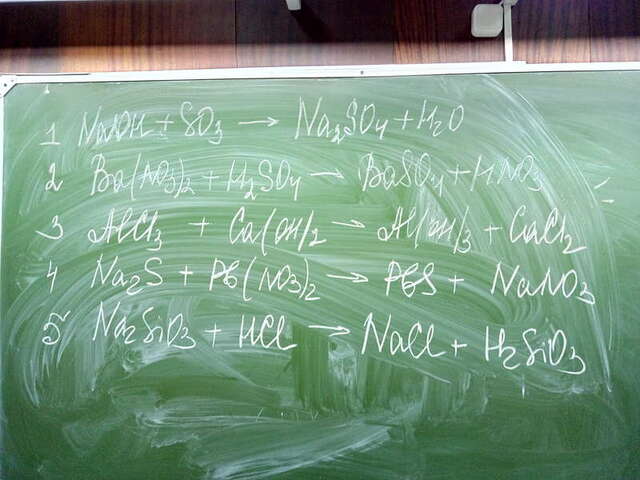 1 NaOH + SO3 → Na2SO4 + H2O
2 Ba(NO3)2 + H2SO4 → BaSO4 + HNO3
3 AlCl3 + Ca(OH)2 → Al(OH)3 + CaCl2
4 Na2S + Pb(NO3)2 → PbS + NaNO3
5 Na2SiO3 + HCl → NaCl + H2SiO3